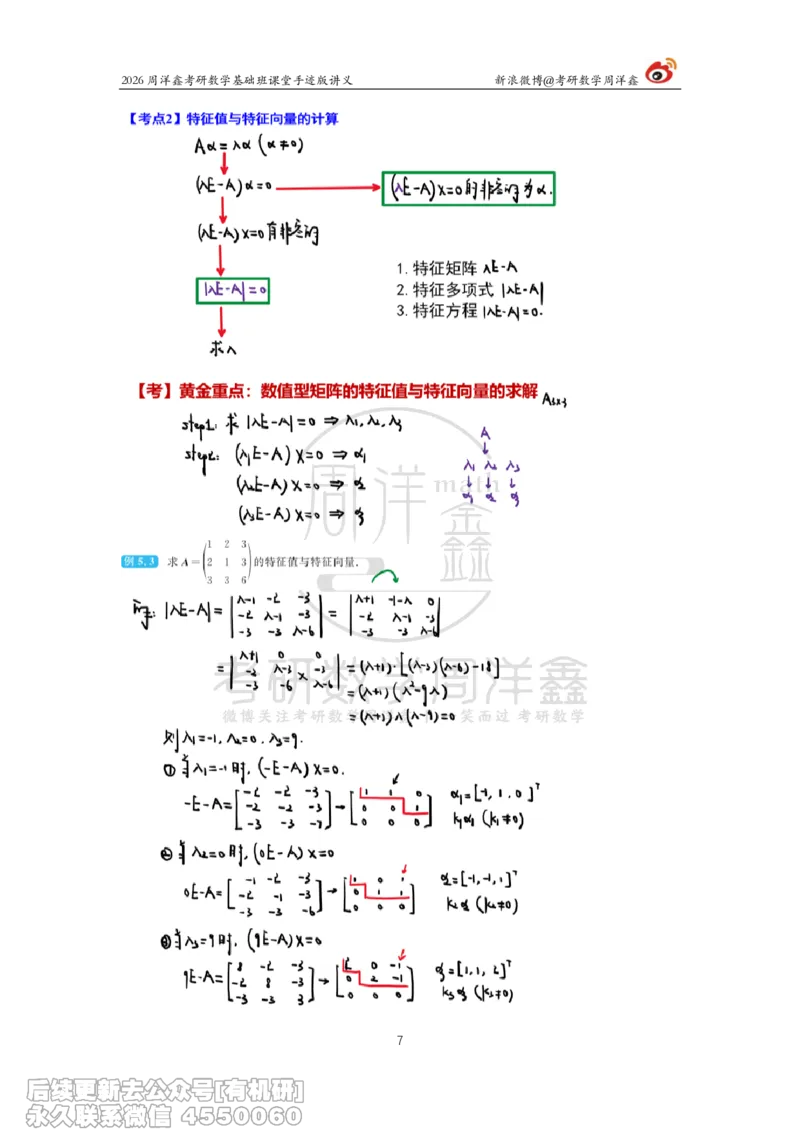 2026 周洋鑫考研数学基础班课堂手迹版讲义 新浪微博@考研数学周洋鑫
【考点2】特征值与特征向量的计算
Aα=λα (α≠0)
(λE-A)α=0 → (λE-A)x=0的非零解为α.
(λE-A)x=0有非零解
|λE-A|=0
求λ
1. 特征矩阵 λE-A
2. 特征多项式 |λE-A|
3. 特征方程 |λE-A|=0.
【考】黄金重点：数值型矩阵的特征值与特征向量的求解 A₃ₓ₃
step1: 求 |λE-A|=0 ⇒ λ₁, λ₂, λ₃
step2: (λ₁E-A)x=0 ⇒ α₁
(λ₂E-A)x=0 ⇒ α₂
(λ₃E-A)x=0 ⇒ α₃
A
↓
λ₁ λ₂ λ₃
↓ ↓ ↓
α₁ α₂ α₃
周洋鑫 math
例 5.3 求 A = (1 2 3; 2 1 3; 3 3 6) 的特征值与特征向量.
解: |λE-A| = |λ-1 -2 -3; -2 λ-1 -3; -3 -3 λ-6| = |λ+1 -1-λ 0; -2 λ-1 -3; -3 -3 λ-6|
= |λ+1 0 0; -2 λ-3 -3; -3 -6 λ-6| = (λ+1)·[(λ-3)(λ-6)-18]
= (λ+1)(λ²-9λ)
= (λ+1)λ(λ-9)=0
考研数学周洋鑫
微博关注考研数学 笑而过 考研数学
则 λ₁=-1, λ₂=0, λ₃=9.
① 当λ₁=-1时, (-E-A)x=0.
-E-A = [-2 -2 -3; -2 -2 -3; -3 -3 -7] → [1 1 0; 0 0 1; 0 0 0] α₁=[-1, 1, 0]ᵀ
k₁α₁ (k₁≠0)
② 当λ₂=0时, (0E-A)x=0
0E-A = [-1 -2 -3; -2 -1 -3; -3 -3 -6] → [1 0 1; 0 1 1; 0 0 0] α₂=[-1, -1, 1]ᵀ
k₂α₂ (k₂≠0)
③ 当λ₃=9时, (9E-A)x=0
9E-A = [8 -2 -3; -2 8 -3; -3 -3 3] → [2 0 -1; 0 2 -1; 0 0 0] α₃=[1, 1, 2]ᵀ
k₃α₃ (k₃≠0)
7
后续更新去公众号[有机研]
永久联系微信 4550060